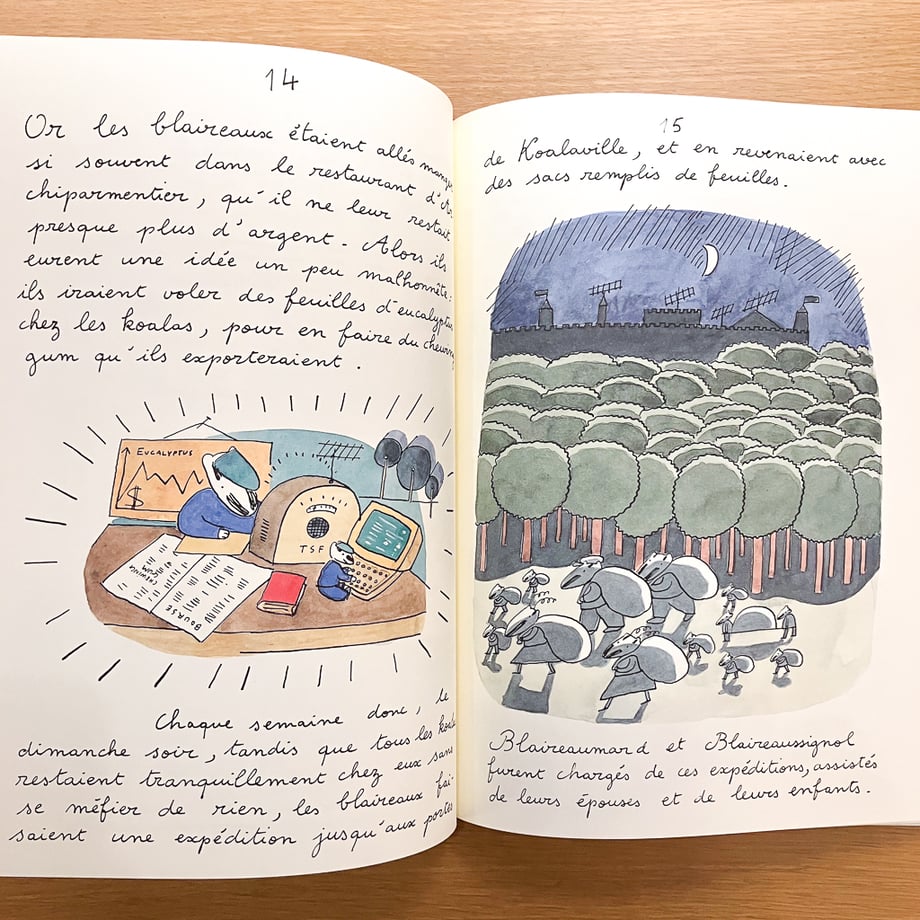 14
Or les blaireaux étaient allés manger
si souvent dans le restaurant d'Ar
chiparmentier, qu'il ne leur restait
presque plus d'argent. Alors ils
eurent une idée un peu malhonnête :
ils iraient voler des feuilles d'eucalyptus
chez les koalas, pour en faire du chewing
gum qu'ils exporteraient.
EUCALYPTUS
$
TSF
BOURSE
Chaque semaine donc, le
dimanche soir, tandis que tous les koalas
restaient tranquillement chez eux sans
se méfier de rien, les blaireaux fai-
saient une expédition jusqu'aux portes
15
de Koalaville, et en revenaient avec
des sacs remplis de feuilles.
Blaireaumard et Blaireaussignol
furent chargés de ces expéditions, assistés
de leurs épouses et de leurs enfants.